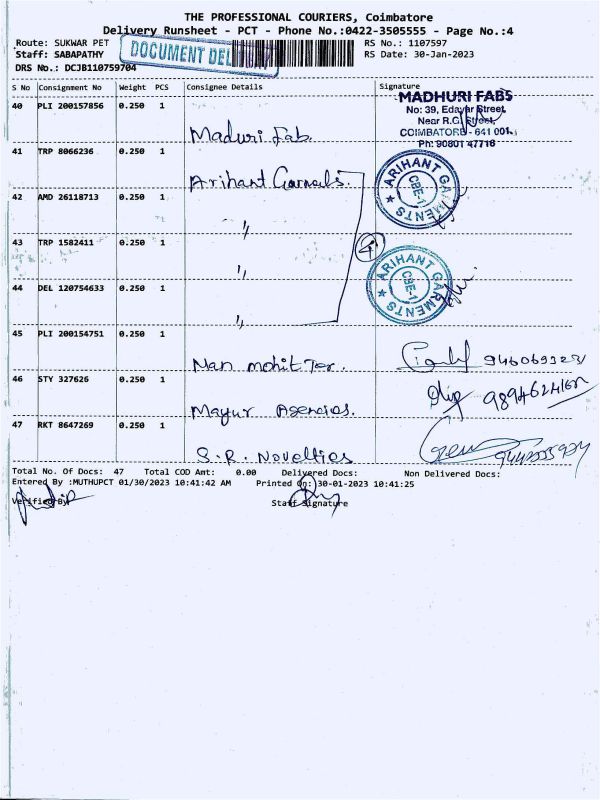 THE PROFESSIONAL COURIERS, Coimbatore
Delivery Runsheet - PCT - Phone No.:0422-3505555 - Page No.:4
Route: SUKWAR PET
DOCUMENT DEL
RS No.: 1107597
Staff: SABAPATHY
RS Date: 30-Jan-2023
DRS No.: DCJB110759704
S No Consignment No Weight PCS Consignee Details Signature
40 PLI 200157856 0.250 1 Maduri Fab.
MADHURI FABS
No: 39, Edayar Street,
Near R.G. Street,
COIMBATORE - 641 001.
Ph: 90801 47716
41 TRP 8066236 0.250 1 Arihant
ARIHANT GARMENTS
CBE-1
42 AMD 26118713 0.250 1 "
43 TRP 1582411 0.250 1 "
4
ARIHANT GARMENTS
CBE-1
44 DEL 120754633 0.250 1 "
45 PLI 200154751 0.250 1 Man mohit Tex.
46 STY 327626 0.250 1 Mayur Agencies.
47 RKT 8647269 0.250 1 S.R. Novelties
Total No. Of Docs: 47 Total COD Amt: 0.00 Delivered Docs: Non Delivered Docs:
Entered By :MUTHUPCT 01/30/2023 10:41:42 AM Printed On: 30-01-2023 10:41:25
Verified By
Staff Signature